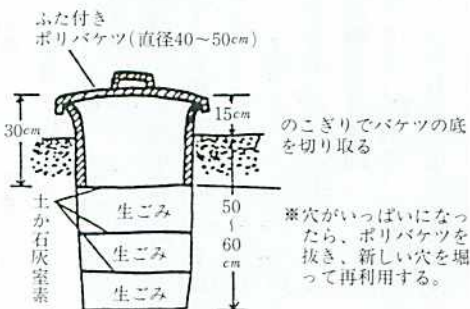 ふた付き
ポリバケツ(直径40〜50cm)
30cm
15cm
のこぎりでバケツの底
を切り取る
土か石灰窒素
生ごみ
生ごみ
生ごみ
50
〜
60
cm
※穴がいっぱいになっ
たら、ポリバケツを
抜き、新しい穴を堀
って再利用する。